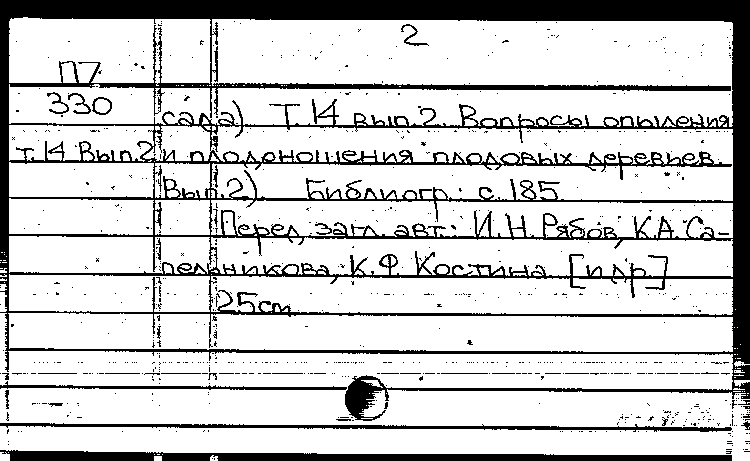 2
П7
330 сада). Т. 14 вып. 2. Вопросы опыления
т. 14 Вып. 2 и плодоношения плодовых деревьев.
Вып. 2). Библиогр.: с. 185
Перед загл. авт.: И. Н. Рябов, К. А. Са-
пельникова, К. Ф. Костина [и др.]
25cm